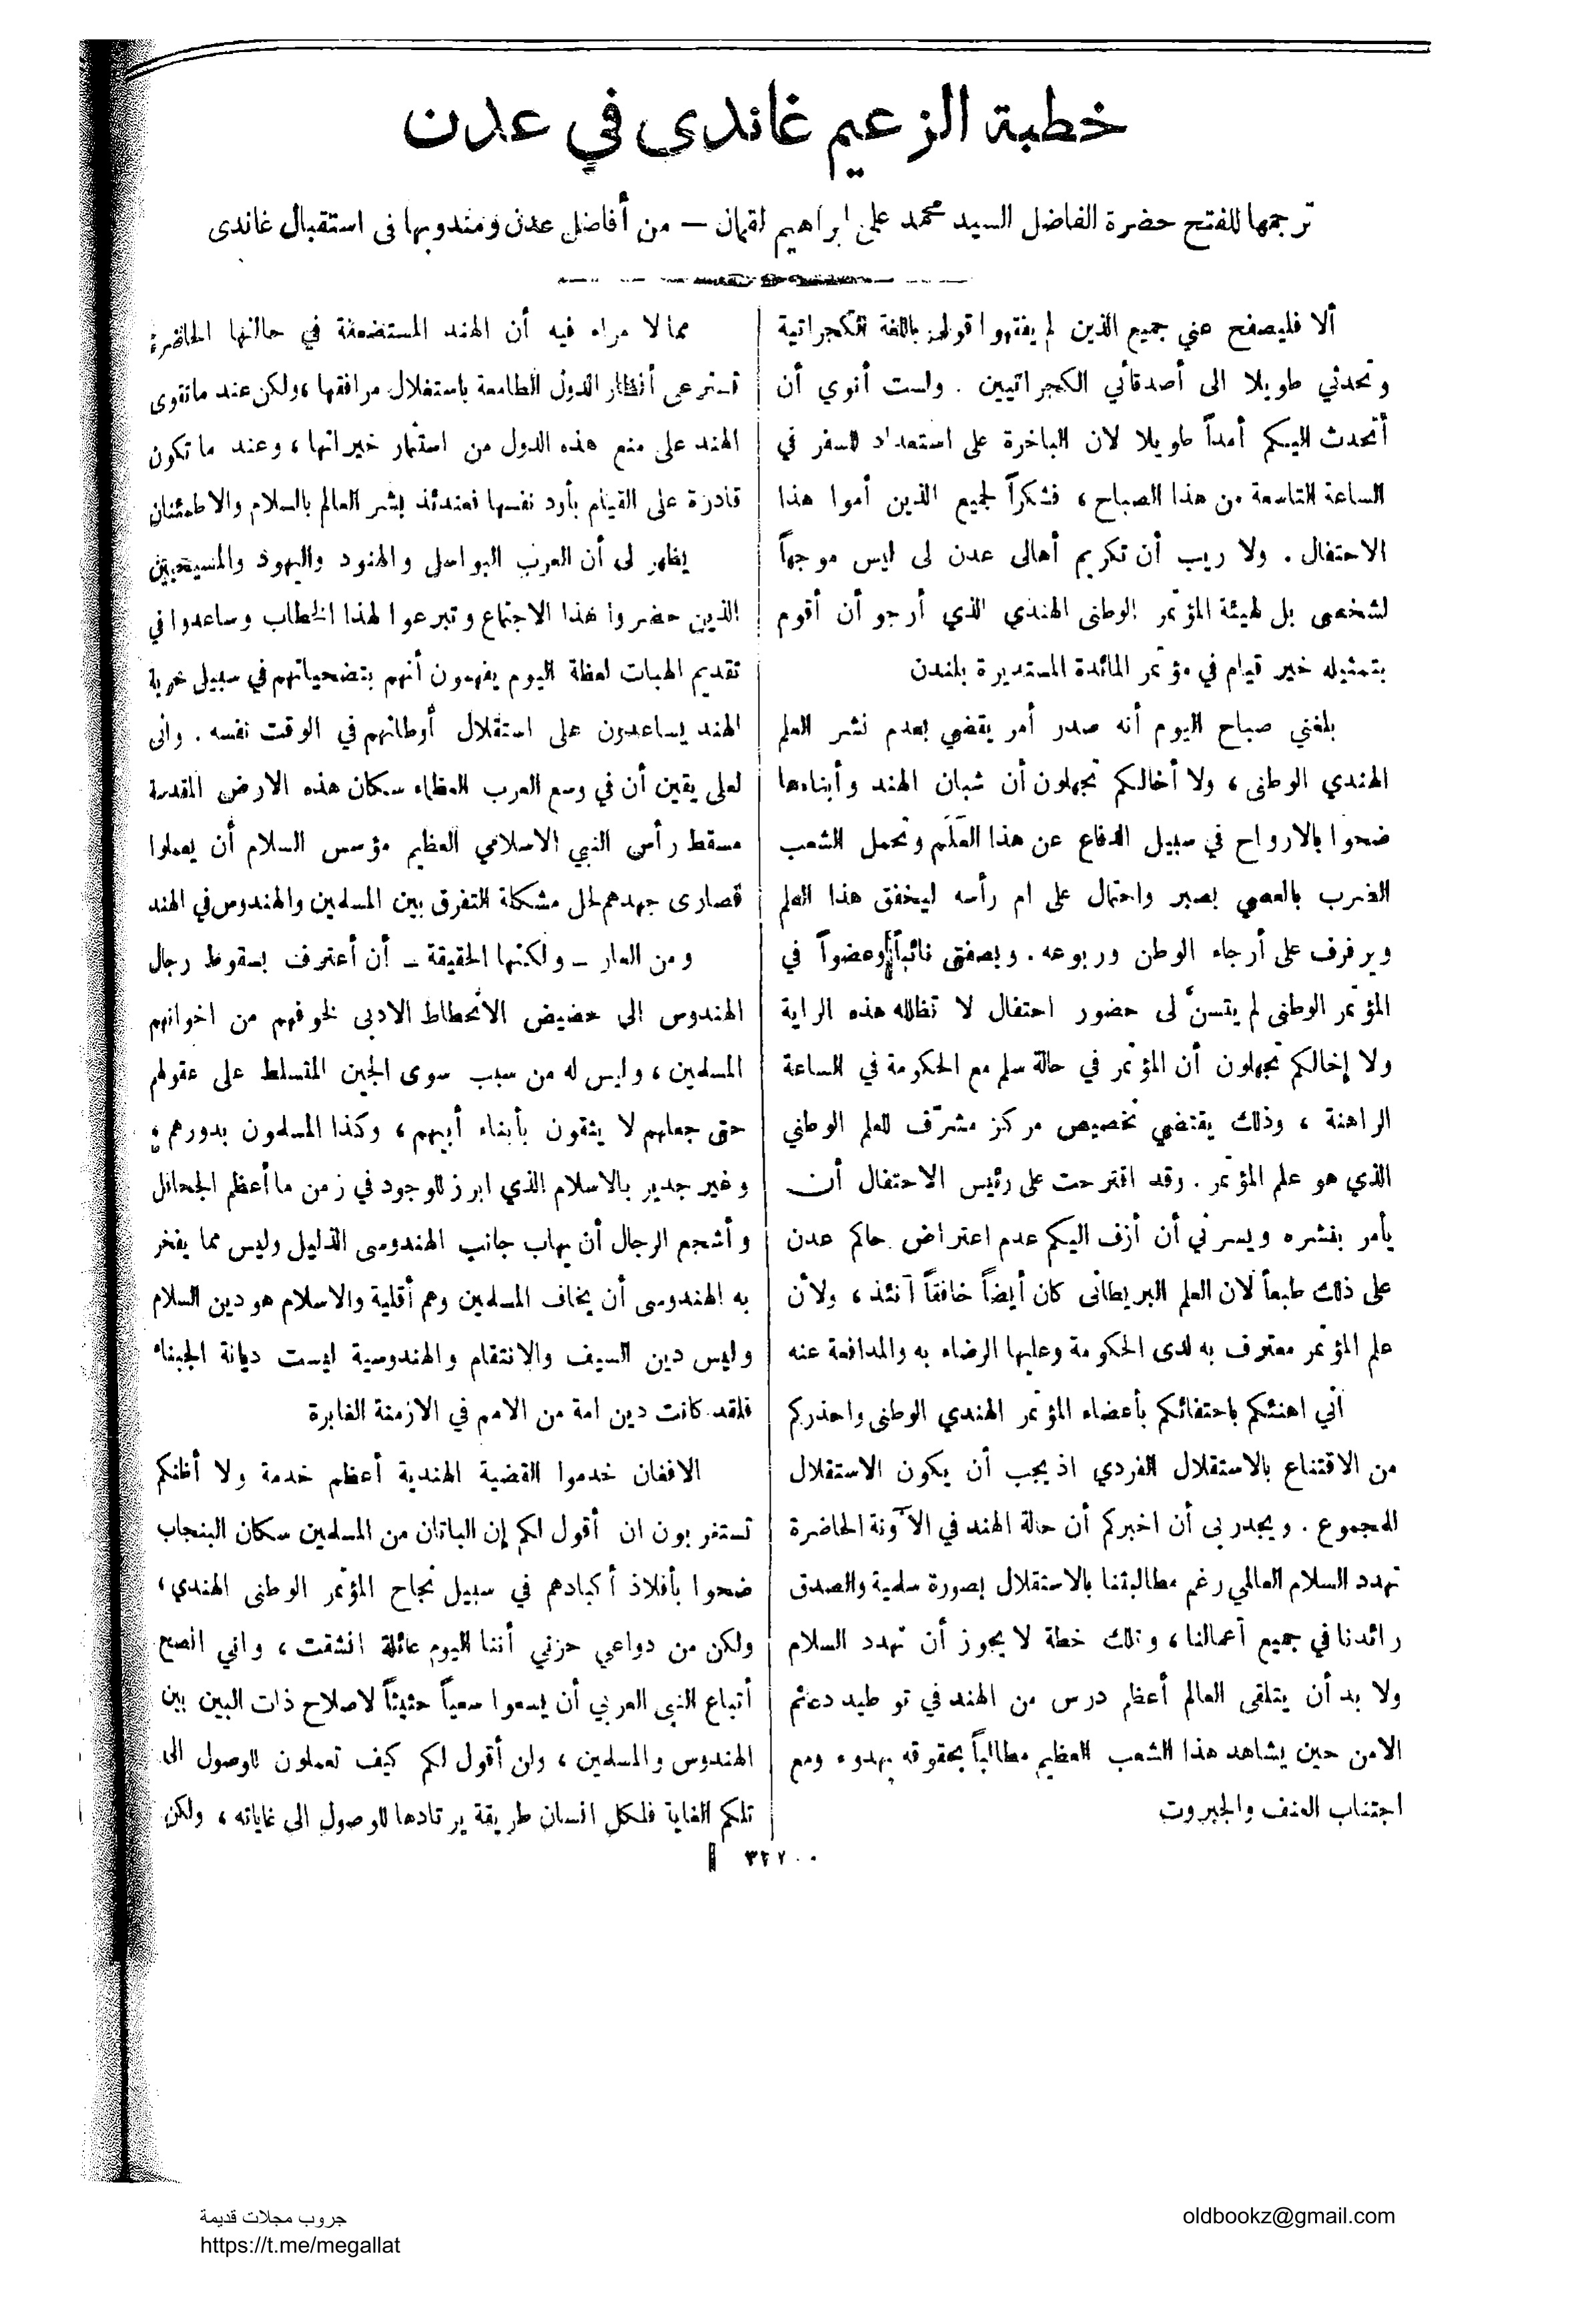 خطبة الزعيم غاندى في عدن
ترجمها للفتح حضرة الفاضل السيد محمد على ابراهيم لقمان — من أفاضل عدن ومندوبها فى استقبال غاندى
ألا فليصفح عني جميع الذين لم يفقهوا قولى باللغة الكجراتية
وتحدثي طويلا الى أصدقائي الكجراتيين . ولست أنوي أن
أتحدث اليكم أمداً طويلا لان الباخرة على استعداد للسفر في
الساعة التاسعة من هذا الصباح ، فشكراً لجميع الذين أموا هذا
الاحتفال . ولا ريب أن تكريم أهالى عدن لى ليس موجهاً
لشخصى بل لهيئة المؤتمر الوطنى الهندي الذي أرجو أن أقوم
بتمثيله خير قيام في مؤتمر المائدة المستديرة بلندن
بلغني صباح اليوم أنه صدر أمر يقضي بعدم نشر العلم
الهندي الوطنى ، ولا أخالكم تجهلون أن شبان الهند وأبناءها
ضحوا بالارواح في سبيل الدفاع عن هذا العَلَم وتحمل الشعب
الضرب بالعصي بصبر واحتمال على ام رأسه ليخفق هذا العلم
ويرفرف على أرجاء الوطن وربوعه . وبصفتى نائباً وعضواً في
المؤتمر الوطنى لم يتسنَّ لى حضور احتفال لا تظلله هذه الراية
ولا إخالكم تجهلون أن المؤتمر في حالة سلم مع الحكومة في الساعة
الراهنة ، وذلك يقتضي تخصيص مركز مشرّف للعلم الوطني
الذي هو علم المؤتمر . وقد اقترحت على رئيس الاحتفال أن
يأمر بنشره ويسرني أن أزف اليكم عدم اعتراض حاكم عدن
على ذلك طبعاً لان العلم البريطانى كان أيضاً خافقاً آنئذ ، ولأن
علم المؤتمر معترف به لدى الحكومة وعليها الرضاء به والمدافعة عنه
أني اهنئكم باحتفائكم بأعضاء المؤتمر الهندي الوطنى واحذركم
من الاقتناع بالاستقلال الفردي اذ يجب أن يكون الاستقلال
للمجموع . ويجدر بى أن اخبركم أن حالة الهند في الآونة الحاضرة
تهدد السلام العالمي رغم مطالبتنا بالاستقلال بصورة سلمية والصدق
رائدنا في جميع أعمالنا ، وتلك خطة لا يجوز أن تهدد السلام
ولا بد أن يتلقى العالم أعظم درس من الهند في توطيد دعائم
الامن حين يشاهد هذا الشعب العظيم مطالباً بحقوقه بهدوء ومع
اجتناب العنف والجبروت
مما لا مراء فيه أن الهند المستضعفة في حالتها الحاضرة
تسترعى أنظار الدول الطامعة باستغلال مرافقها ، ولكن عند ما تقوى
الهند على منع هذه الدول من استثمار خيراتها ، وعند ما تكون
قادرة على القيام بأود نفسها فعندئذ بشر العالم بالسلام والاطمئنان
يظهر لى أن العرب البواسل والهنود واليهود والمسيحيين
الذين حضروا هذا الاجتماع وتبرعوا لهذا الخطاب وساعدوا في
تقديم الهبات لعظة اليوم يفهمون أنهم بتضحياتهم في سبيل حرية
الهند يساعدون على استقلال أوطانهم في الوقت نفسه . وانى
لعلى يقين أن في وسع العرب العظماء سكان هذه الارض المقدسة
مسقط رأس النبي الاسلامي العظيم مؤسس السلام أن يعملوا
قصارى جهدهم لحل مشكلة التفرق بين المسلمين والهندوس في الهند
ومن العار – ولكنها الحقيقة – أن أعترف بسقوط رجال
الهندوس الى حضيض الانحطاط الادبى لخوفهم من اخوانهم
المسلمين ، وليس له من سبب سوى الجبن المتسلط على عقولهم
حتى جعلهم لا يثقون بأبناء أبيهم ، وكذا المسلمون بدورهم ؛
وغير جدير بالاسلام الذي ابرز للوجود في زمن ما أعظم الجحافل
وأشجع الرجال أن يهاب جانب الهندوسى الذليل وليس مما يفخر
به الهندوسى أن يخاف المسلمين وهم أقلية والاسلام هو دين السلام
وليس دين السيف والانتقام والهندوسية ليست ديانة الجبناء
فلقد كانت دين امة من الامم في الازمنة الغابرة
الافغان خدموا القضية الهندية أعظم خدمة ولا أظنكم
تستغربون ان أقول لكم إن الباتان من المسلمين سكان البنجاب
ضحوا بأفلاذ أكبادهم في سبيل نجاح المؤتمر الوطنى الهندي ،
ولكن من دواعي حزني أننا اليوم عائلة انشقت ، واني انصح
أتباع النبى العربي أن يسعوا سعياً حثيثاً لاصلاح ذات البين بين
الهندوس والمسلمين ، ولن أقول لكم كيف تعملون للوصول الى
تلكم الغاية فلكل انسان طريقة يرتادها للوصول الى غاياته ، ولكن
جروب مجلات قديمة
https://t.me/megallat
oldbookz@gmail.com